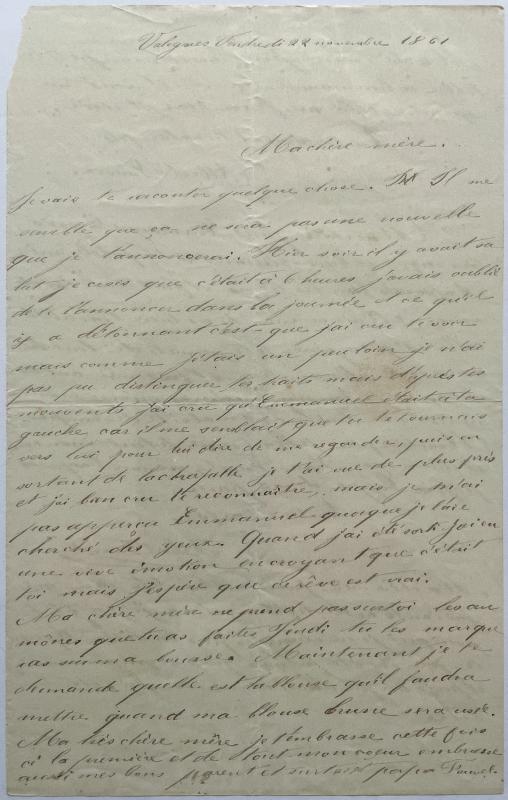 Valognes Vendredi 22 novembre 1861
Ma chère mère.
Je vais te raconter quelque chose. Il me
semble que ça ne sera pas une nouvelle
que je t'annoncerai. Hier soir il y avait sa
lut je crois que c'était à 6 heures j'avais oublié
de te l'annoncer dans la journée et ce qu'il
y a d'étonnant c'est que j'ai cru te voir
mais comme j'étais un peu loin je n'ai
pas pu distinguer tes traits mais d'après tes
mouvents j'ai cru qu'Emmanuel était à ta
gauche car il me semblait que tu te tournais
vers lui pour lui dire de me regarder, puis en
sortant de la je t'ai vue de plus près
et j'ai ban cru te reconnaître, mais je n'ai
pas apperçu Emmanuel quoique je l'aie
cherché des yeux. Quand j'ai été sorti j'ai eu
une vive émotion en croyant que c'était
toi mais j'espère que ce rêve est vrai.
Ma chère mère ne prend pas sur toi les au
mônes que tu as faites Jeudi tu les marque
ras sur ma bourse. Maintenant je te
demande quelle est la blouse qu'il faudra
mettre quand ma blouse brune sera usée.
Ma très chère mère je t'embrasse cette fois
ci la première et de tout mon coeur embrasse
aussi mes bons parent et surtout papa